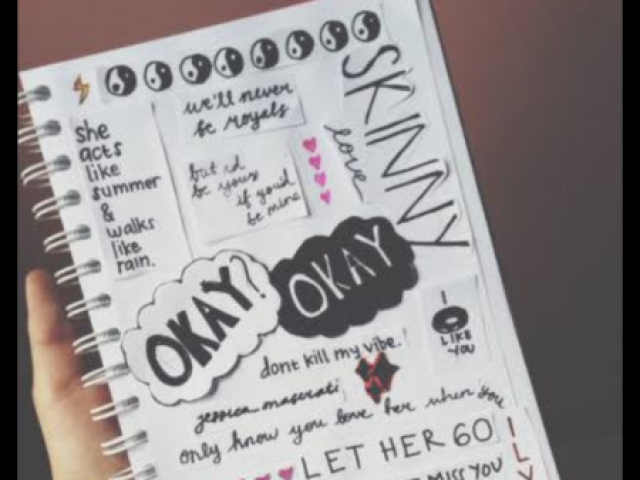 she
acts
like
summer
&
walks
like
rain.
we'll never
be royals
but i'd
be yours
if you'd
be mine
SKINNY
love
OKAY?
OKAY
I
LIKE
YOU
dont kill my vibe.
jessica maserati
only know you love her when you
LET HER GO
MISS YOU
I
L
Y